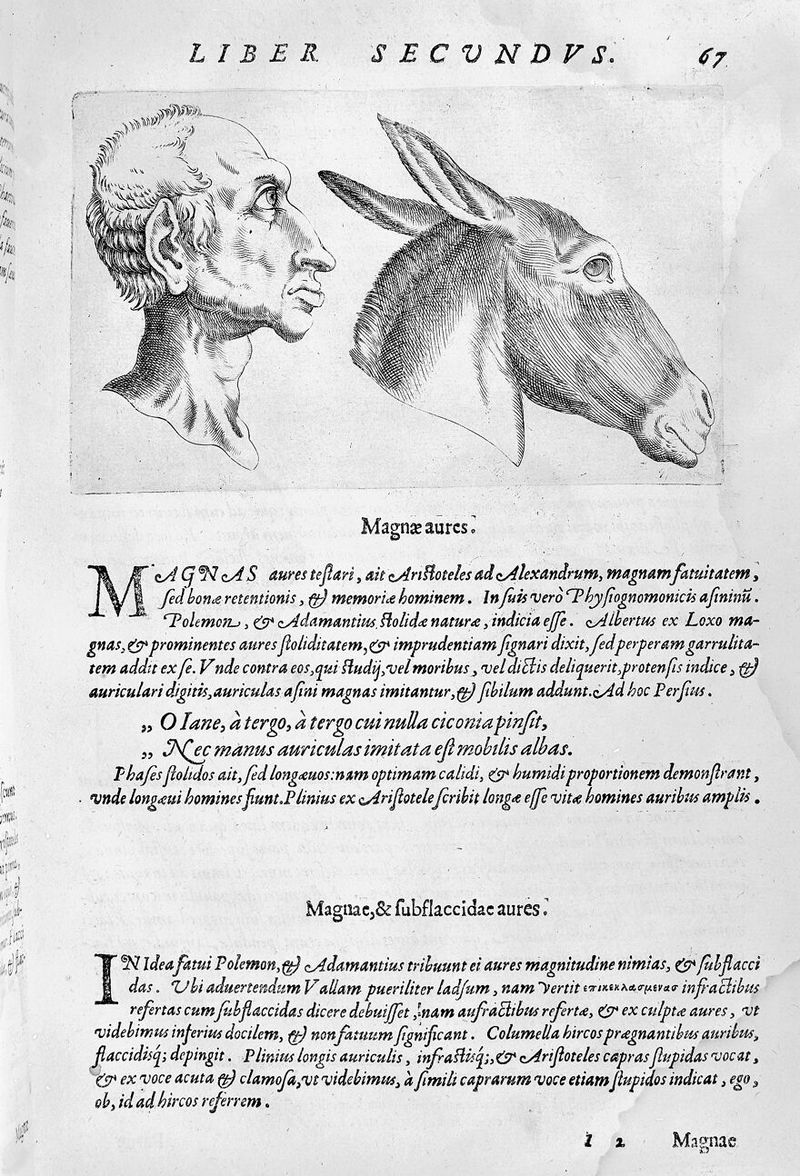 LIBER SECUNDVS. 67
Magnæ aures.
MAGNAS aures testari, ait Aristoteles ad Alexandrum, magnam fatuitatem,
sed bonæ retentionis, & memoriæ hominem. In suis verò Physiognomonicis asininũ.
Polemon, & Adamantius, stolidæ naturæ, indicia esse. Albertus ex Loxo ma-
gnas, & prominentes aures stoliditatem, & imprudentiam signari dixit, sed perperam garrulita-
tem addit ex se. Vnde contra eos, qui studij, vel moribus, vel dictis deliquerit, protensis indice, &
auriculari digitis, auriculas asini magnas imitantur, & sibilum addunt. Ad hoc Persius.
„ O Iane, à tergo, à tergo cui nulla ciconia pinsit,
„ Nec manus auriculas imitata est mobilis albas.
Phases stolidos ait, sed longæuos: nam optimam calidi, & humidi proportionem demonstrant,
vnde longæui homines fiunt. Plinius ex Aristotele scribit longæ esse vitæ homines auribus amplis.
Magnae, & subflaccidae aures.
IN Idea fatui Polemon, & Adamantius tribuunt ei aures magnitudine nimias, & subflacci
das. Ubi aduertendum Vallam pueriliter lapsum, nam vertit επικεκλασμενασ infractibus
refertas cum subflaccidas dicere debuisset, nam aufractibus refertæ, & ex culptæ aures, vt
videbimus inferius docilem, & non fatuum significant. Columella hircos prægnantibus auribus,
flaccidisq; depingit. Plinius longis auriculis, infractisq;, & Aristoteles capras stupidas vocat,
& ex voce acuta & clamosa, vt videbimus, à simili caprarum voce etiam stupidos indicat, ego,
ob, id ad hircos referrem.
I 2 Magnae